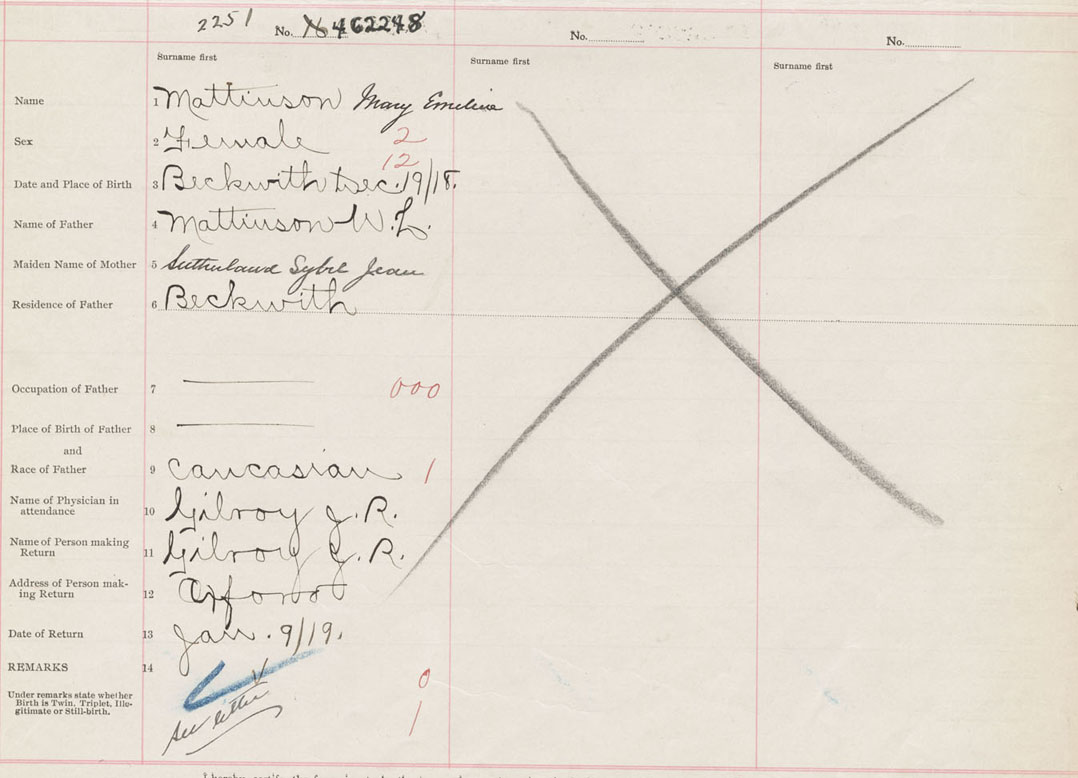 2251
No. 462248
No.
No.
Surname first
Surname first
Surname first
Name 1 Mattinson Mary Emeline
Sex 2 Female 2
12
Date and Place of Birth 3 Beckwith Dec. 19/18.
Name of Father 4 Mattinson W. L.
Maiden Name of Mother 5 Sutherland Sybil Jean
Residence of Father 6 Beckwith
Occupation of Father 7 000
Place of Birth of Father 8
and
Race of Father 9 Caucasian 1
Name of Physician in
attendance 10 Gilroy J. R.
Name of Person making
Return 11 Gilroy J. R.
Address of Person mak-
ing Return 12 Oxford
Date of Return 13 Jan. 9/19.
REMARKS 14
0
Under remarks state whether
Birth is Twin, Triplet, Ille-
gitimate or Still-birth.
See letter
1
I hereby certify the foregoing to be the